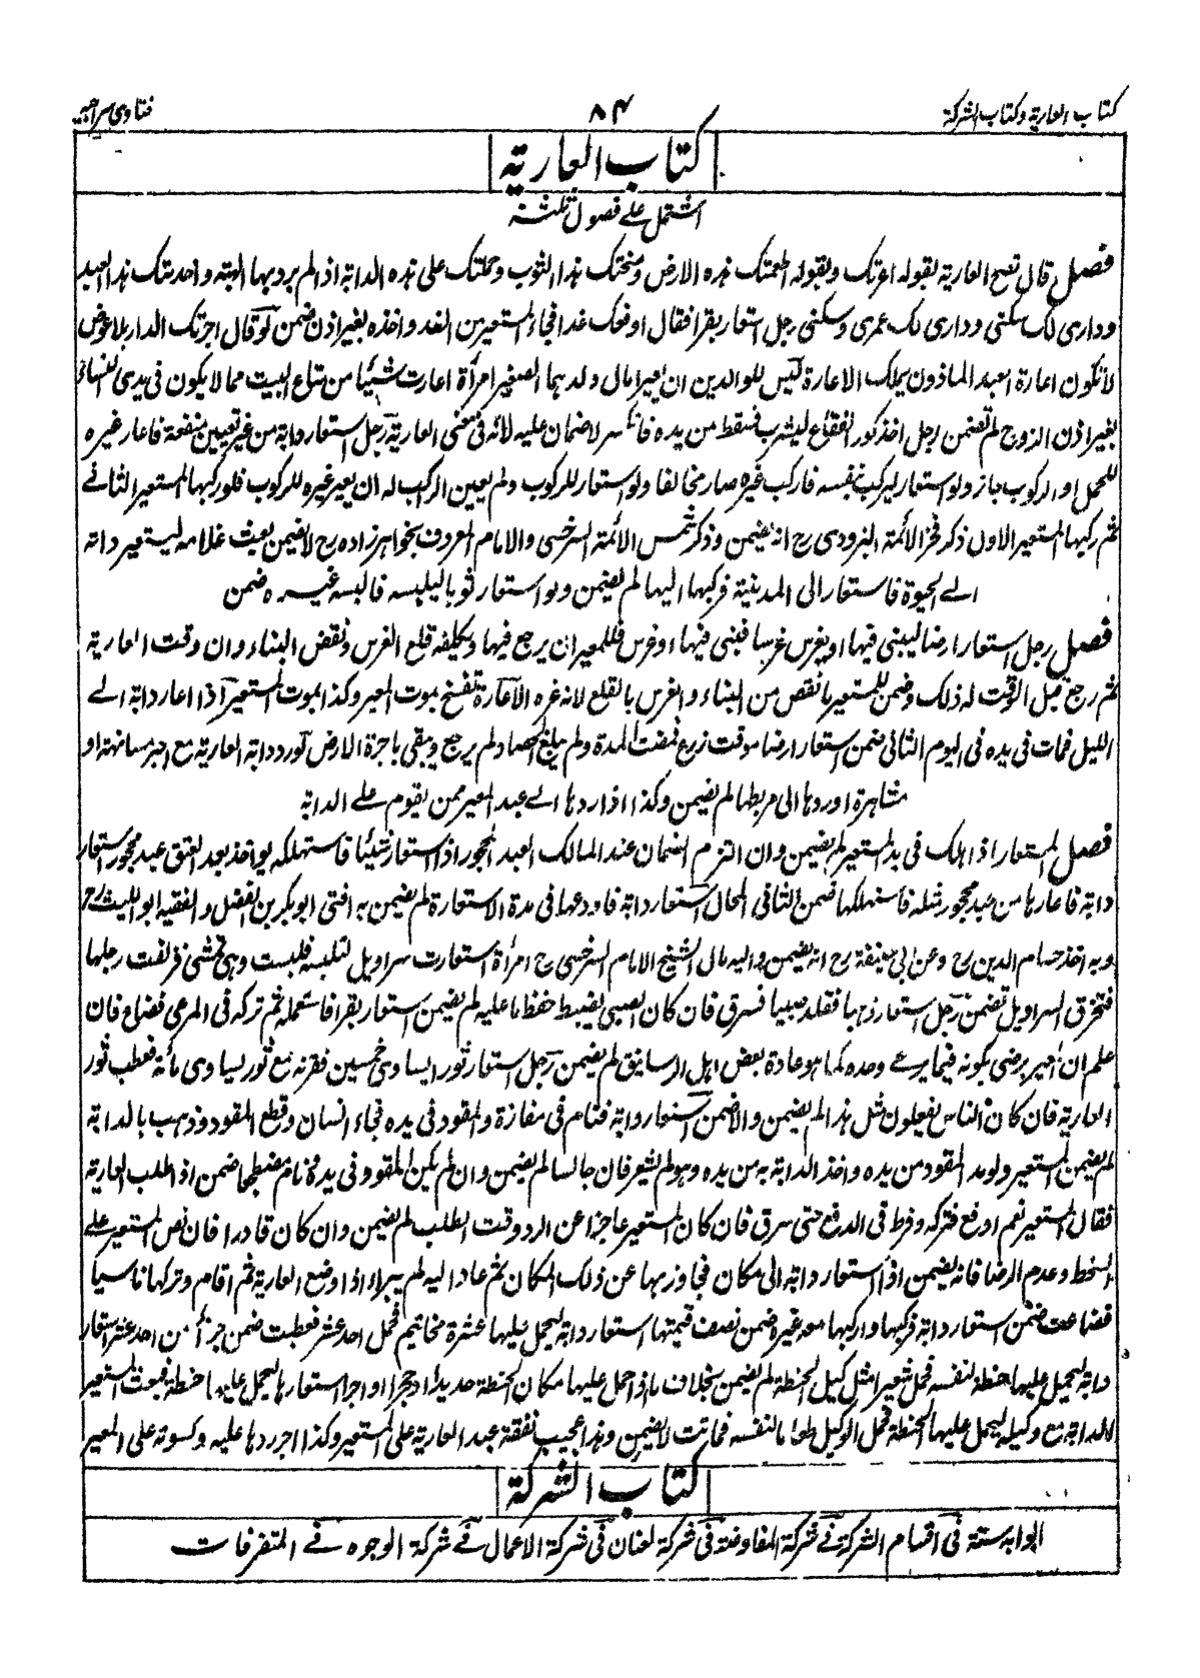 كتاب العارية وكتاب الشركة
٨٤
فتاوى سراجيه
كتاب العارية
اشتمل على فصول ثلثة
فصل قال تصح العارية بقوله اعرتك وبقوله اطعمتك هذه الارض ومنحتك هذا الثوب وحملتك على هذه الدابة اذا لم يرد بها الهبة واخدمتك هذا العبد
ودارى لك سكنى ودارى لك عمرى وسكنى رجل استعار بقرا فقال ادفعك غدا فجاء المستعير من الغد واخذه بغير اذن ضمن لو قال اجرتك الدار بلا عوض
لا تكون اعارة العبد الماذون يملك الاعارة ليس للوالدين ان يعيرا مال ولدهما الصغير امرأة اعارت شيئا من متاع البيت مما لا يكون فى يدى النساء
بغير اذن الزوج لم تضمن رجل اخذ كوز الفقاع ليشرب فسقط من يده فانكسر لا ضمان عليه لانه فى معنى العارية رجل استعار دابة من غير تعيين منفعة فاعار غيره
للحمل او الركوب جاز ولو استعار ليركب بنفسه فاركب غيره صار مخالفا ولو استعار للركوب ولم يعين الراكب له ان يعير غيره للركوب فلو ركبها المستعير الثانى
ثم ركبها المستعير الاول ذكر فخر الائمة البزدوى رح انه يضمن وذكر شمس الائمة السرخسى والامام المعروف بخواهرزاده رح لا يضمن بعث غلامه ليستعير دابته
الى الحيرة فاستعار الى المدينة فركبها اليها لم يضمن ولو استعار ثوبا ليلبسه فالبسه غيره ضمن
فصل رجل استعار ارضا ليبنى فيها او يغرس غرسا فبنى فيها او غرس فللمعير ان يرجع فيها ويكلفه قلع الغرس ونقض البناء وان وقت العارية
ثم رجع قبل الوقت له ذلك وضمن للمستعير ما نقص من البناء والغرس بالقلع لانه غره الاعارة تنفسخ بموت المعير وكذا بموت المستعير اذا اعار دابة الى
الليل فمات فى يده فى اليوم الثانى ضمن استعار ارضا موقت زرع فمضت المدة ولم يبلغ الحصاد لم يرجع ويبقى باجرة الارض لو رد دابة العارية مع اجير مسانهة او
مشاهرة او ردها الى مربطها لم يضمن وكذا اذا ردها الى عبد المعير ممن يقوم على الدابة
فصل المستعار اذا هلك فى يد المستعير لم يضمن وان التزم الضمان عند المالك العبد المحجور اذا استعار شيئا فاستهلكه يواخذ بعد العتق عبد محجور استعار
دابة فاعارها من عبد محجور مثله فاستهلكها ضمن الثانى للحال استعار دابة فاودعها فى مدة الاستعارة لم يضمن به افتى ابو بكر بن الفضل والفقيه ابو الليث رح
وبه اخذ حسام الدين رح وعن ابى حنيفة رح انه يضمن واليه مال الشيخ الامام السرخسى رح امرأة استعارت سراويل لتلبسه فلبست وهى تمشى فزلقت رجلها
فتخرق السراويل لم تضمن رجل استعار ذهبا فقلد صبيا فسرق فان كان الصبى يضبط حفظ ما عليه لم يضمن استعار بقرا فاستعمله ثم تركه فى المرعى فضاع فان
علم ان المعير يرضى بكونه فيما يرعى وحده كما هو عادة بعض اهل الرساتيق لم يضمن رجل استعار ثورا يساوى خمسين فقرنه مع ثور يساوى مائة فعطب ثور
العارية فان كان الناس يفعلون مثل هذا لم يضمن والا ضمن استعار دابة فنام فى مفازة والمقود فى يده فجاء انسان وقطع المقود وذهب بالدابة
لم يضمن المستعير ولو مد المقود من يده واخذ الدابة به من يده وهو لم يشعر فان جالسا لم يضمن وان لم يكن المقود فى يده ونام مضطجعا ضمن اذا طلب العارية
فقال المستعير نعم ادفع فتركه وفرط فى الدفع حتى سرق فان كان المستعير عاجزا عن الرد وقت الطلب لم يضمن وان كان قادرا فان نص المستعير على
السخط وعدم الرضا فانه يضمن اذا استعار دابة الى مكان فجاوز بها عن ذلك المكان ثم عاد اليه لم يبراء اذا وضع العارية ثم اقام وتركها ناسيا
فضاعت ضمن استعار دابة فركبها واركبها معه غيره ضمن نصف قيمتها استعار دابة ليحمل عليها عشرة مخاتيم فحمل احد عشر فعطبت ضمن جزأ من احد عشر استعار
دابة ليحمل عليها حنطة لنفسه فحمل شعيرا مثل كيل الحنطة لم يضمن بخلاف ما اذا حمل عليها مكان الحنطة حديدا او حجرا او اجر استعارها ليحمل عليها حنطة فبعث المستعير
الدابة مع وكيله ليحمل عليها الحنطة فحمل الوكيل طعاما لنفسه فماتت لا يضمن وهذا عجيب نفقة عبد العارية على المستعير وكذا اجر ردها عليه وكسوته على المعير
كتاب الشركة
ابوابه ستة فى اقسام الشركة فى شركة المفاوضة فى شركة العنان فى شركة الاعمال فى شركة الوجوه فى المتفرقات